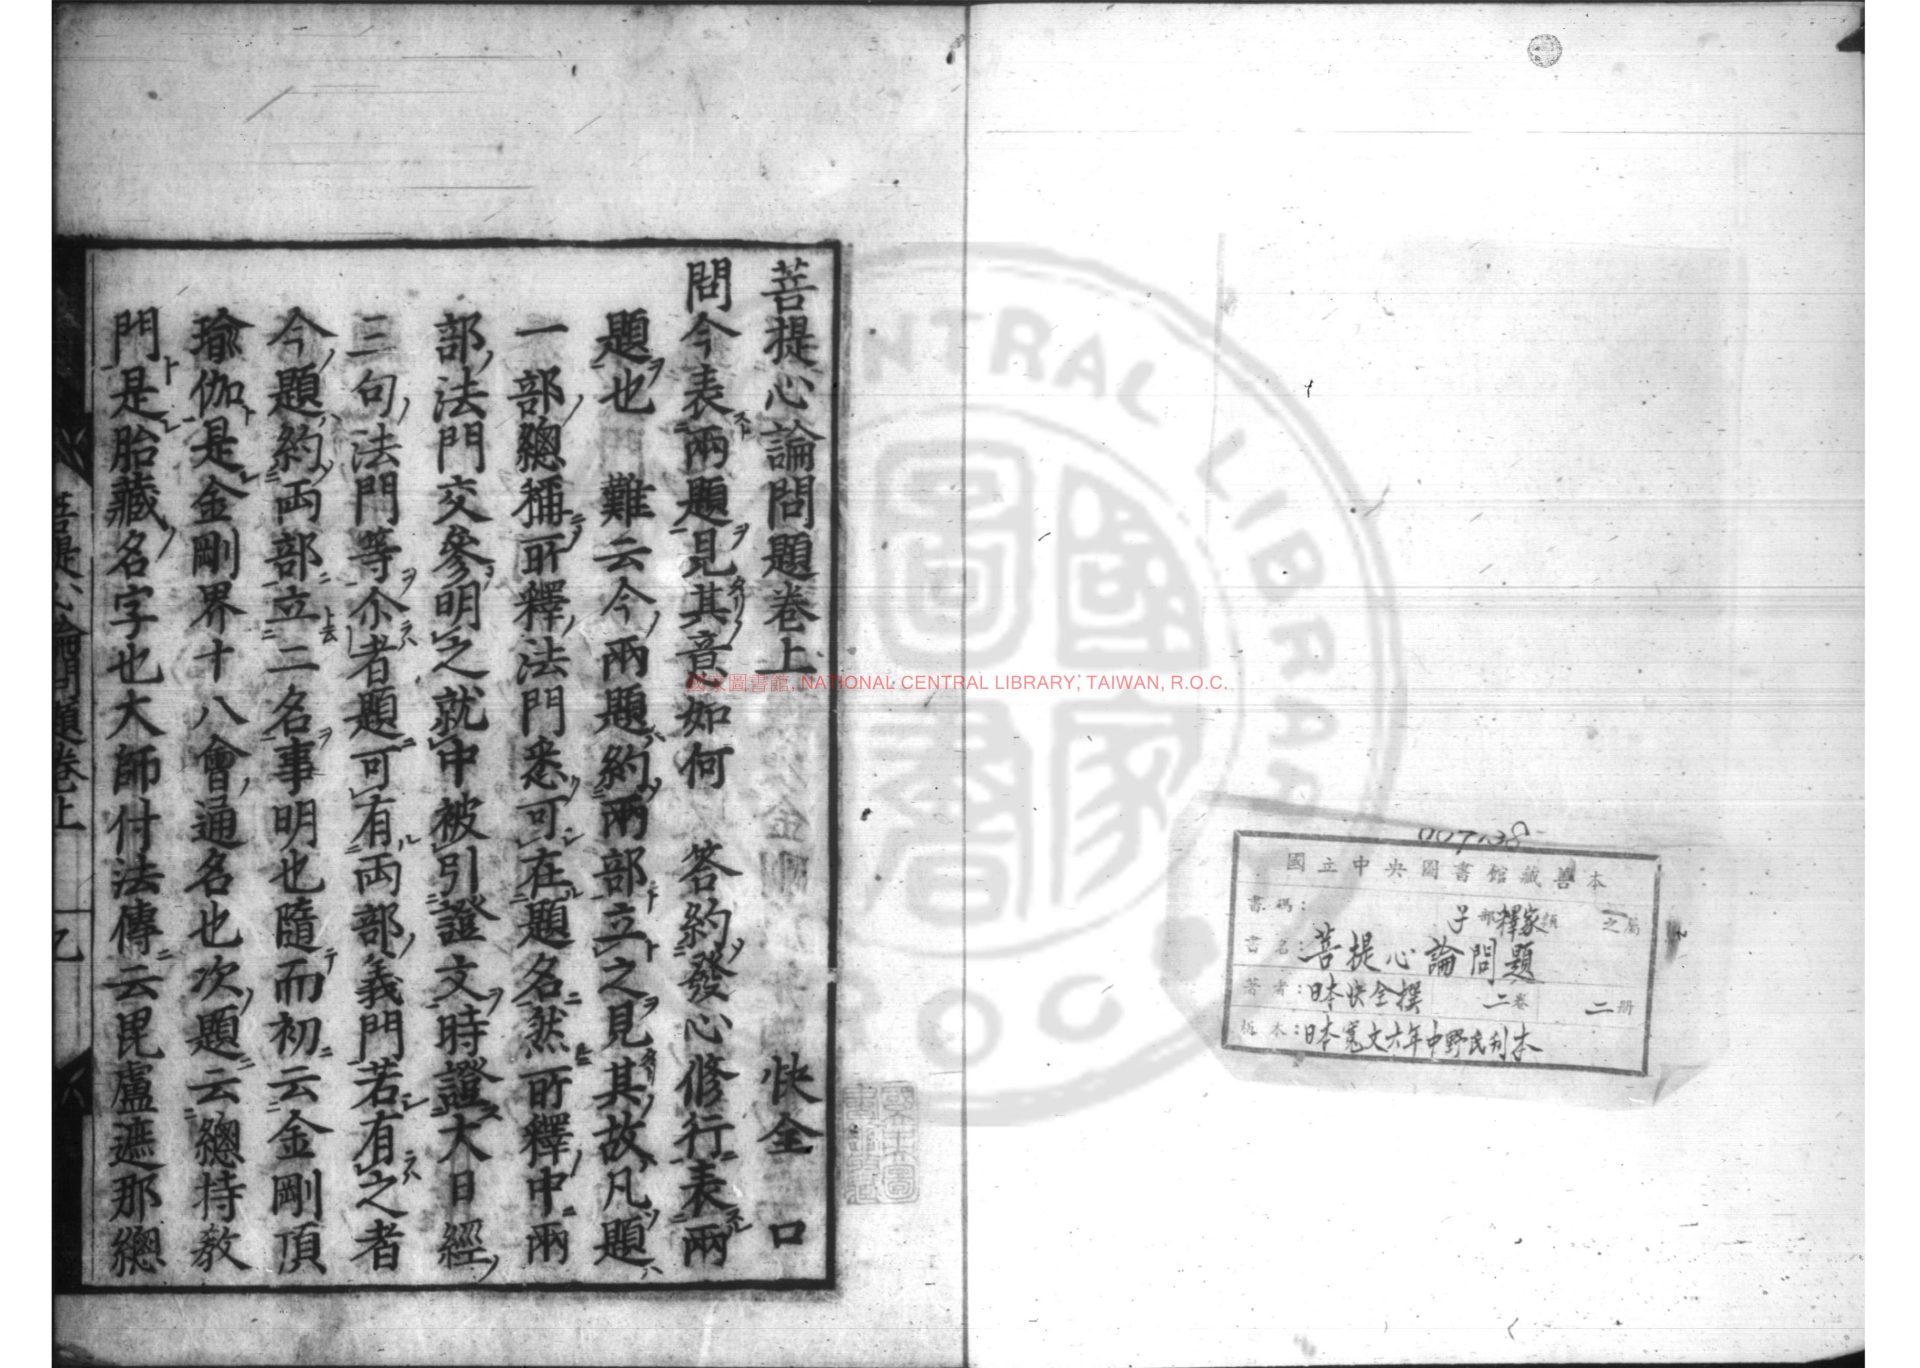 菩提心論問題卷上 快全 口
問今表兩題見其意如何 答約發心修行表兩
題也 難云今兩題約兩部立之見其故凡題
一部總稱所釋法門悉可在題名然所釋中兩
部法門交參明之就中被引證文時證大日經
三句法門等尒者題可有両部義門若有之者
今題約両部立二名事明也隨而初云金剛頂
瑜伽是金剛界十八會通名也次題云總持教
門是胎藏名字也大師付法傳云毘盧遮那總
菩提心論問題卷上
國家圖書館, NATIONAL CENTRAL LIBRARY, TAIWAN, R.O.C.
CENTRAL LIBRARY
R.O.C.
國家圖書
國立中央圖書館藏善本
書碼：子部釋家類 之屬
書名：菩提心論問題
著者：日本快全撰 二卷 二册
板本：日本寬文六年中野氏刊本